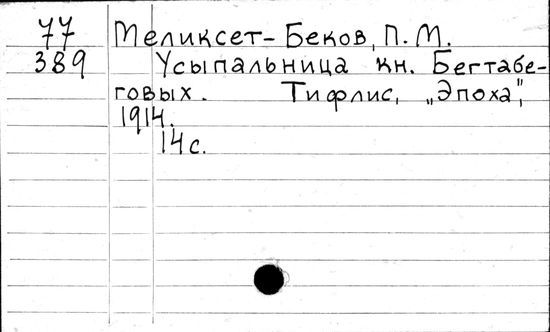 77 Меликсет-Беков, П. М.
389 Усыпальница кн. Бегтабе-
говых. Тифлис, „Эпоха",
1914.
14 с.